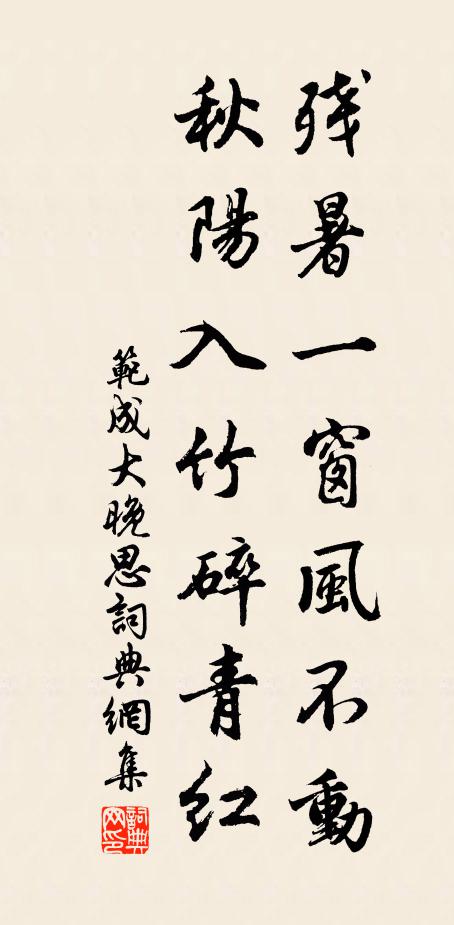 残暑一窗風不動
秋陽入竹碎青紅
範成大晚思詞典網集
詞典
网印